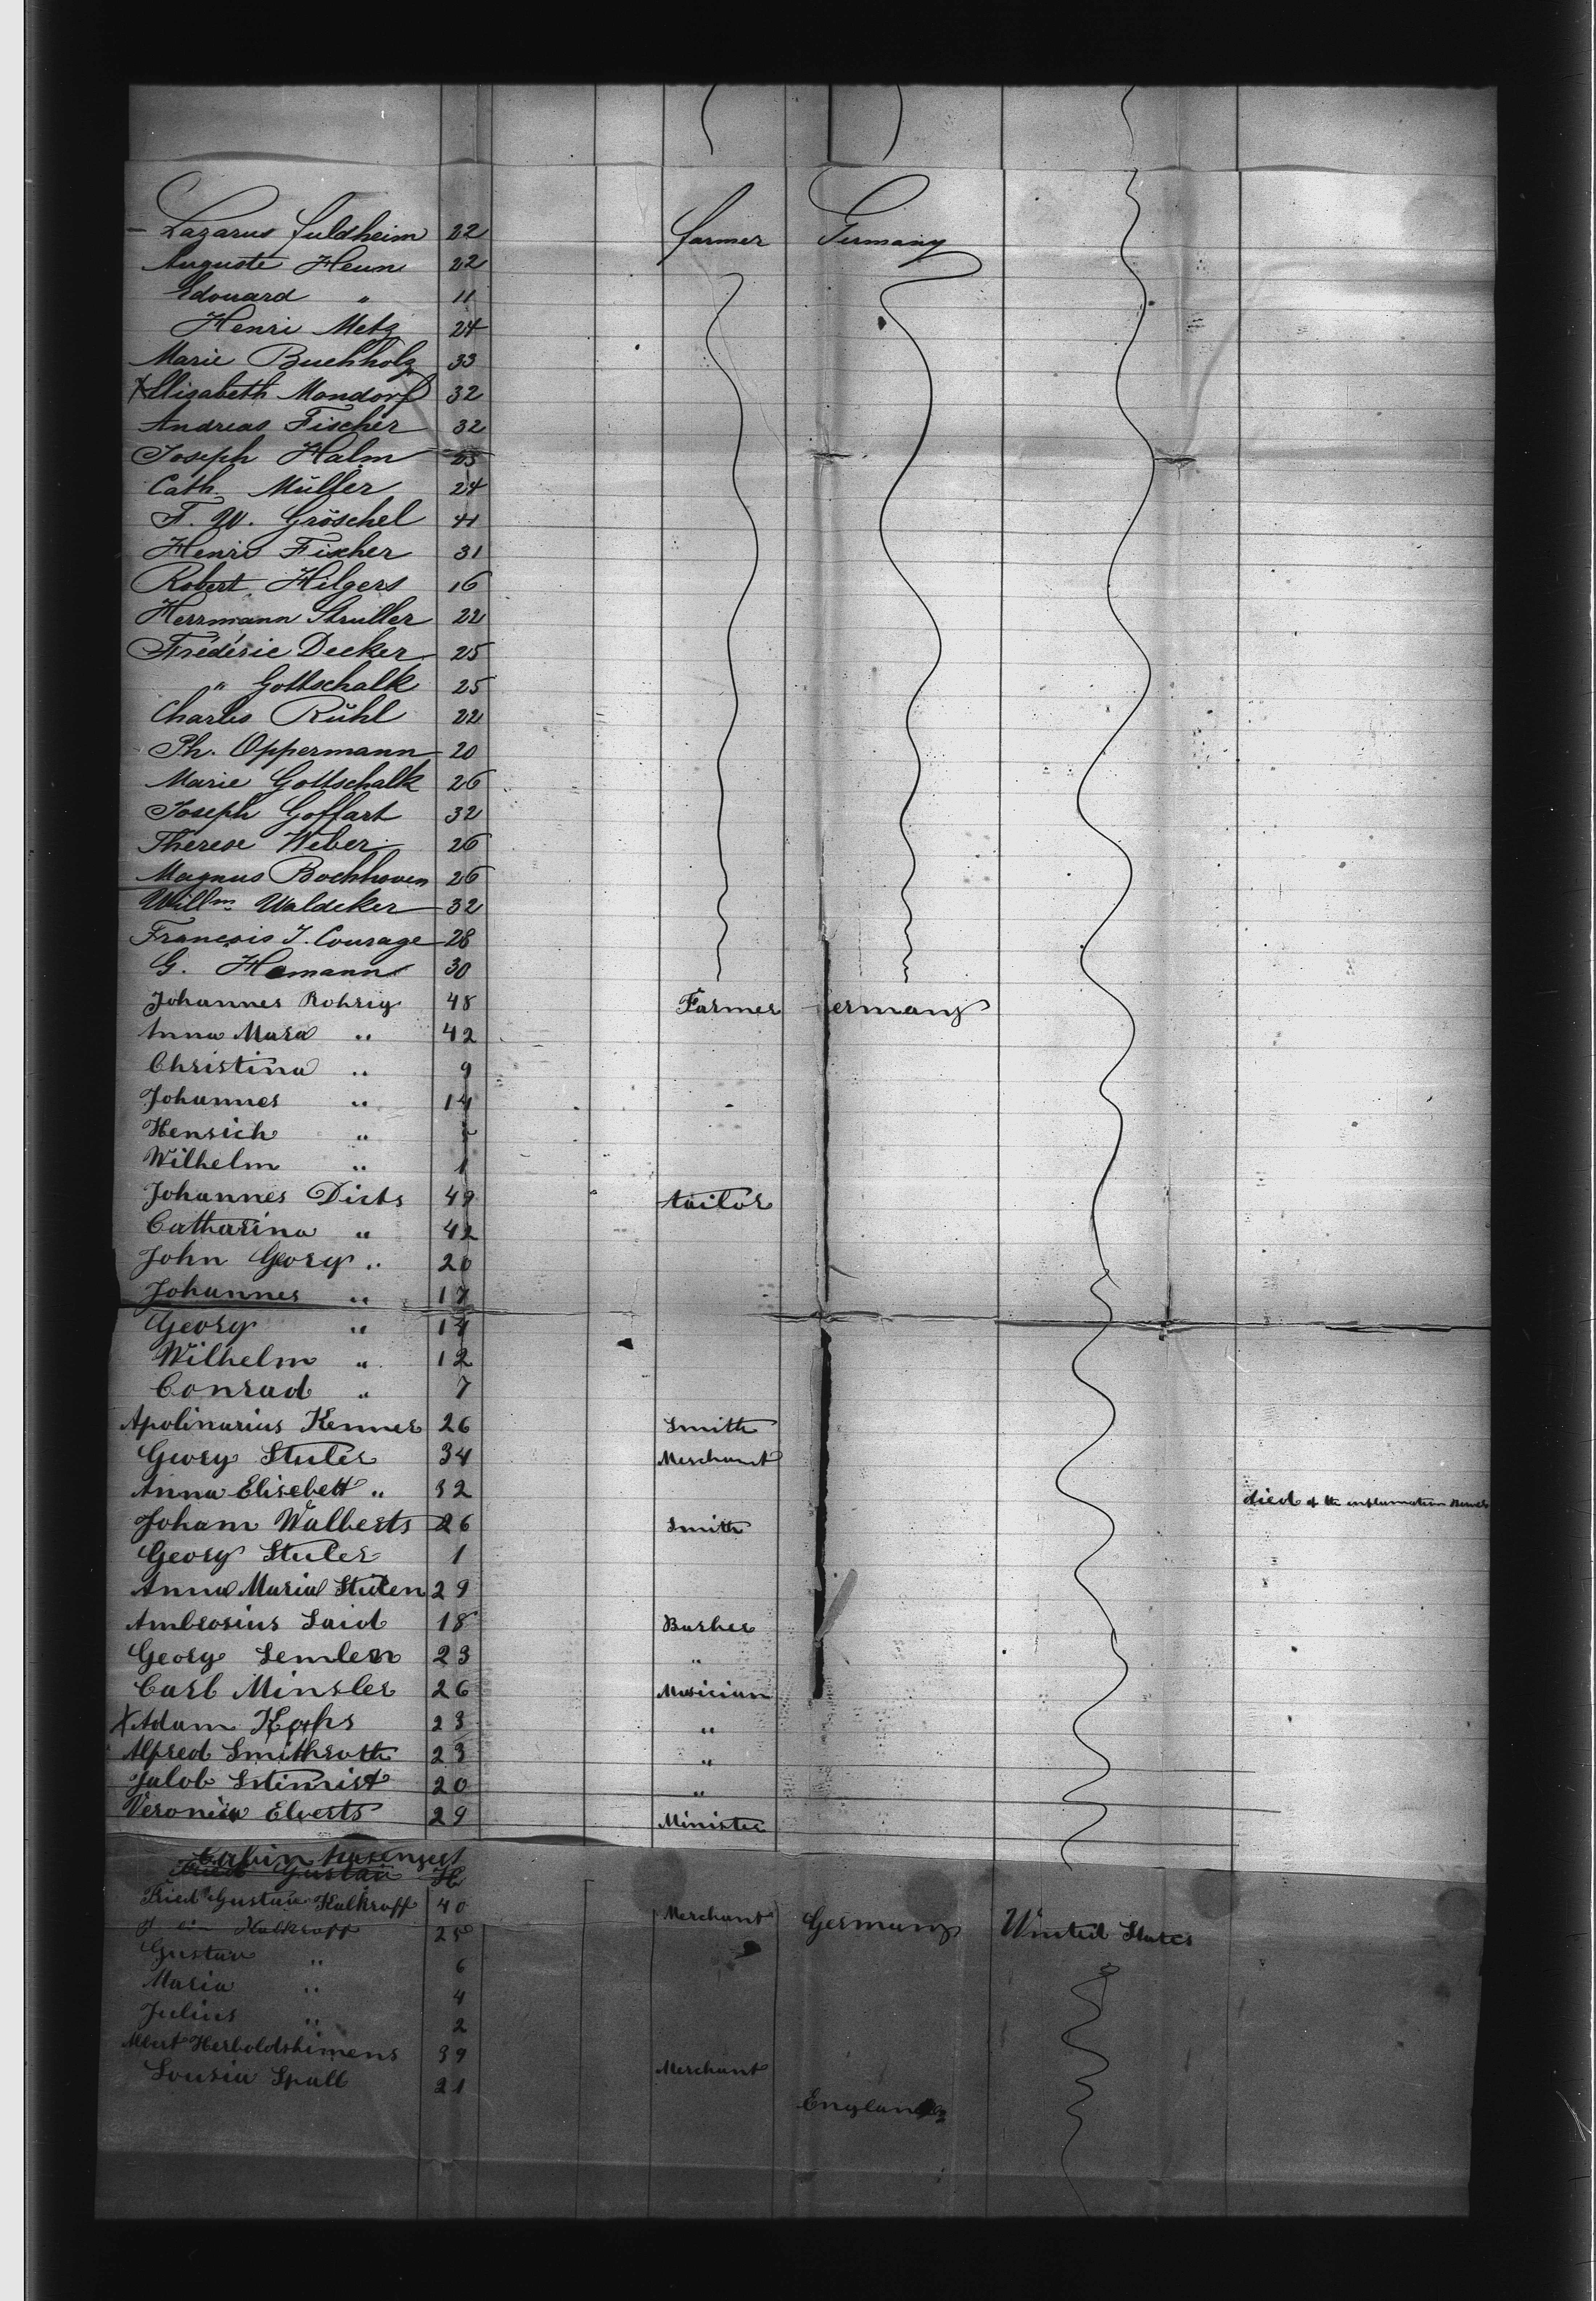 Lazarus Fuldheim 22 farmer Germany
Auguste Heun 22
Edouard " 11
Henri Metz 24
Marie Buchholz 33
X Elisabeth Mondorf 32
Andreas Fischer 32
Joseph Halm 23
Cath. Müller 24
F. W. Gröschel 41
Henri Fischer 31
Robert Hilgers 16
Herrmann Struller 22
Fréderic Decker 25
" Gottschalk 25
Charles Rühl 22
Ph. Oppermann 20
Marie Gottschalk 26
Joseph Goffart 32
Therese Weber 26
Magnus Bochhoven 26
Willm Waldeker 32
François J. Courage 28
G. Hamann 30
Johannes Rohrig 48 Farmer Germany
Anna Mara " 42
Christina " 9
Johannes " 14
Henrich "
Wilhelm " 1
Johannes Diets 49 tailor
Catharina " 42
John Georg " 20
Johannes " 17
Georg " 14
Wilhelm " 12
Conrad " 7
Apolinarius Kenner 26 Smith
Georg Stuler 34 Merchant
Anna Elisebett " 32 died of the
Joham Walberts 26 Smith
Georg Stuler 1
Anna Maria Stulen 29
Ambrosius Said 18 Barber
Georg Semlern 23 "
Carl Minsler 26 Musician
X Adam 23 "
Alfred Smithroth 23 "
Jalob 20 "
Veronica Elverts 29 Minister
Cabin
Fried Gustav
Fried Gustav Kalkroff 40 Merchant Germany United States
Kalkroff 25
Gustav " 6
Maria " 4
Julius " 2
Albert Herboldshimens 39 Merchant
Lousia Spall 21 England